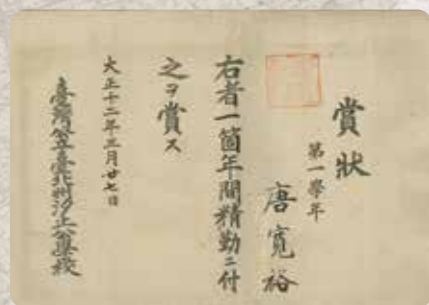 賞狀
第一學年
唐寬裕
右者一箇年間精勤ニ付
之ヲ賞ス
大正十二年三月廿七日
臺灣公立臺北州汐止公學校